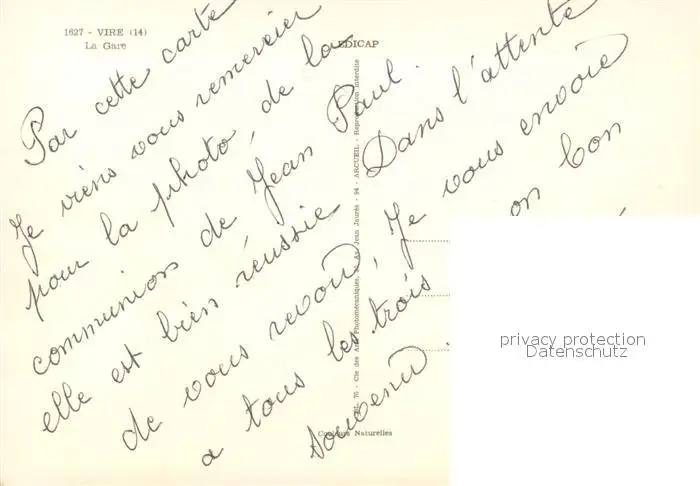 1627 - VIRE (14)
La Gare
EDICAP
Par cette carte
Je viens vous remercier
pour la photo, de la
communion de Jean Paul.
elle est bien réussie Dans l'attente
de vous revoir, Je vous envoie
a tous les trois on bon
Souvenir.
ARCUEIL - Reproduction interdite
Av. Jean Jaurès - 94
Couleurs Naturelles
privacy protection
Datenschutz